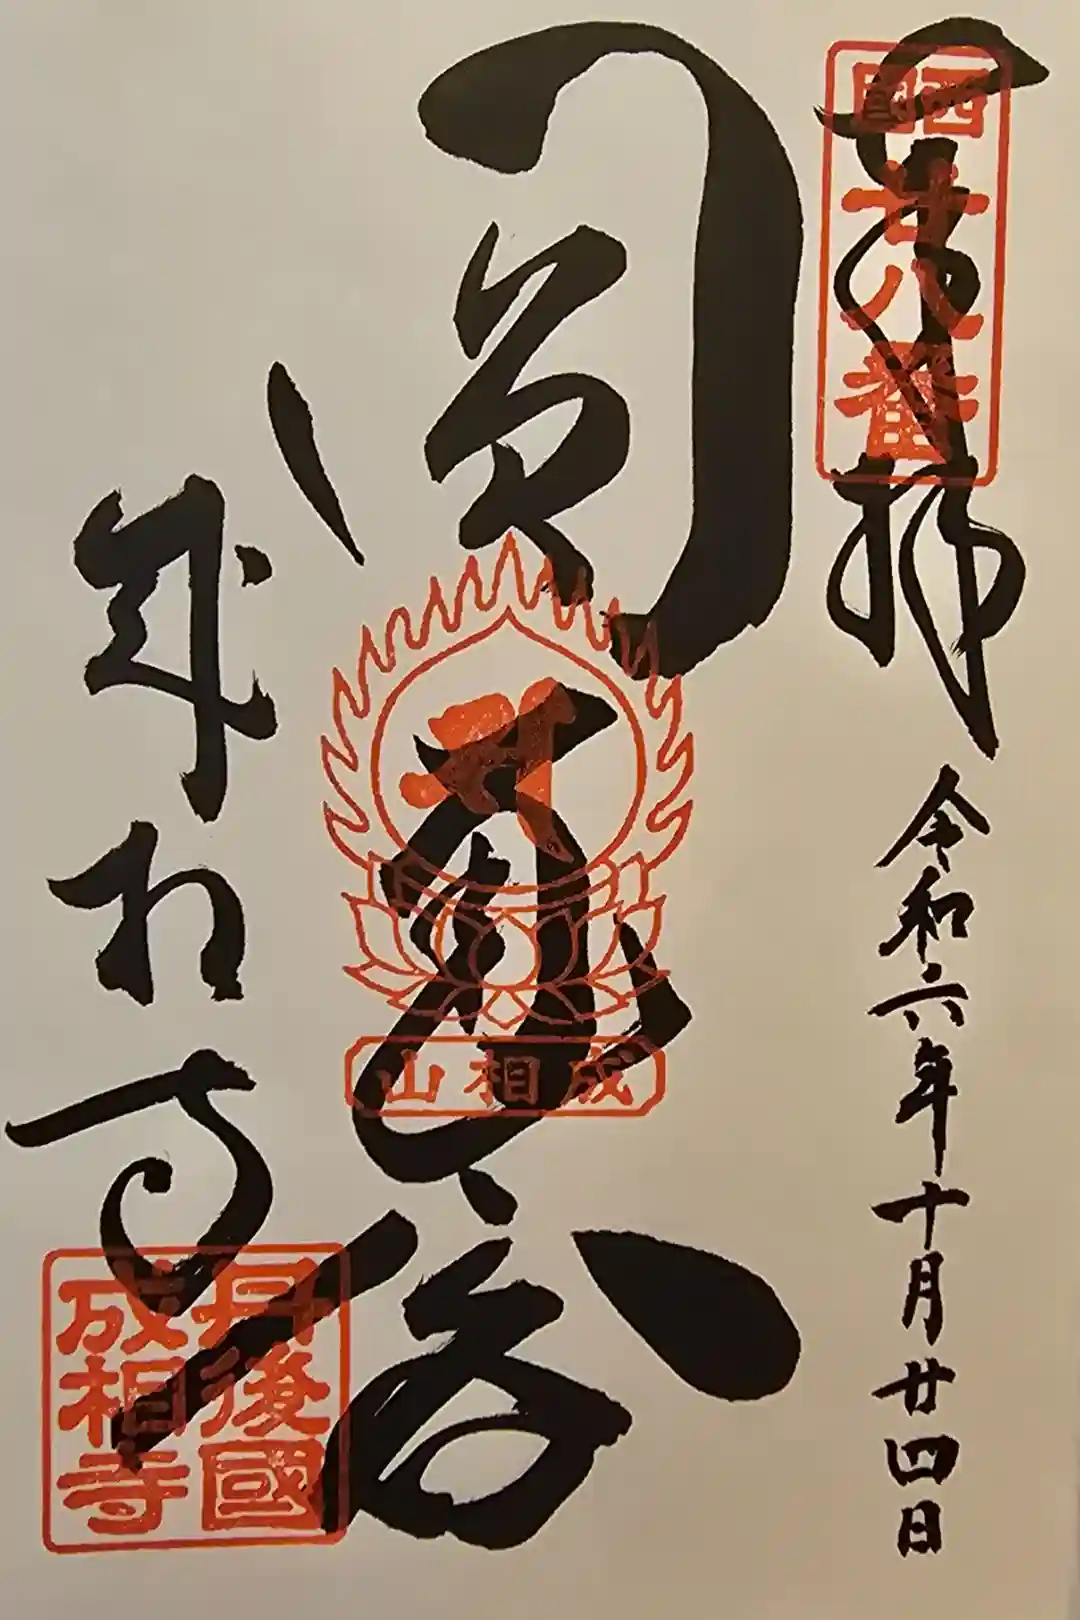 奉拝
令和六年十月廿四日
西國
廿八番
圓通
成相山
成相寺
丹後國
成相寺